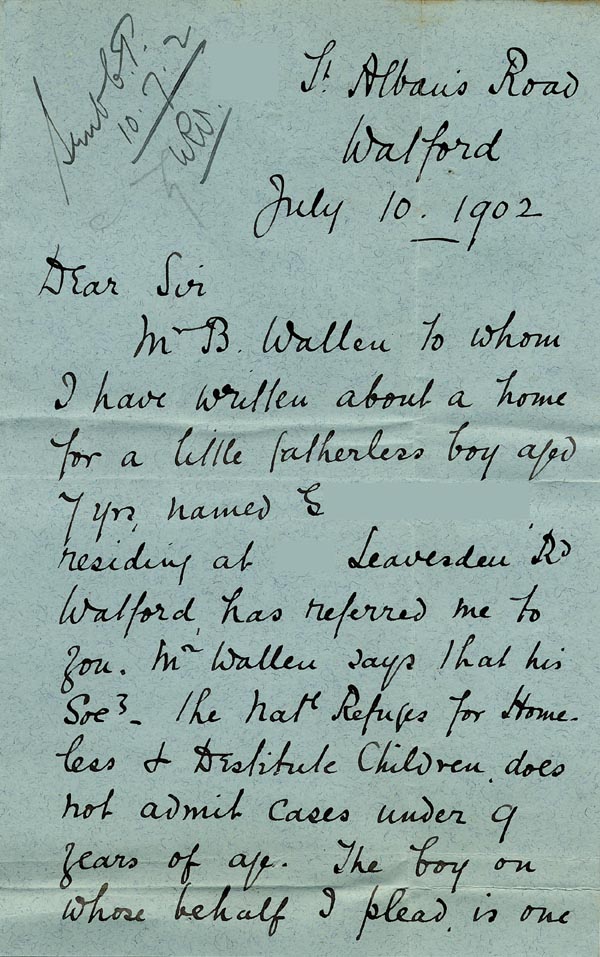 St Albans Road
Watford
July 10. 1902
10.7.2
Dear Sir
Mr B. Wallen to whom
I have written about a home
for a little fatherless boy aged
7 yrs, named G
residing at Leavesden Rd
Watford, has referred me to
you. Mr Wallen says that his
Socy - The Natl Refuges for Home-
less & Destitute Children, does
not admit cases under 9
years of age. The boy on
whose behalf I plead, is one